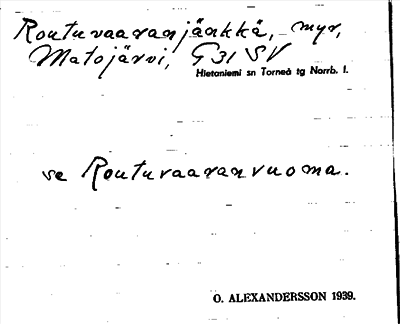 Routuvaaranjänkkä, myr,
Matojärvi, G31 SV
Hietaniemi sn Torneå tg Norrb. l.
se Routuvaaranvuoma.
O. ALEXANDERSSON 1939.